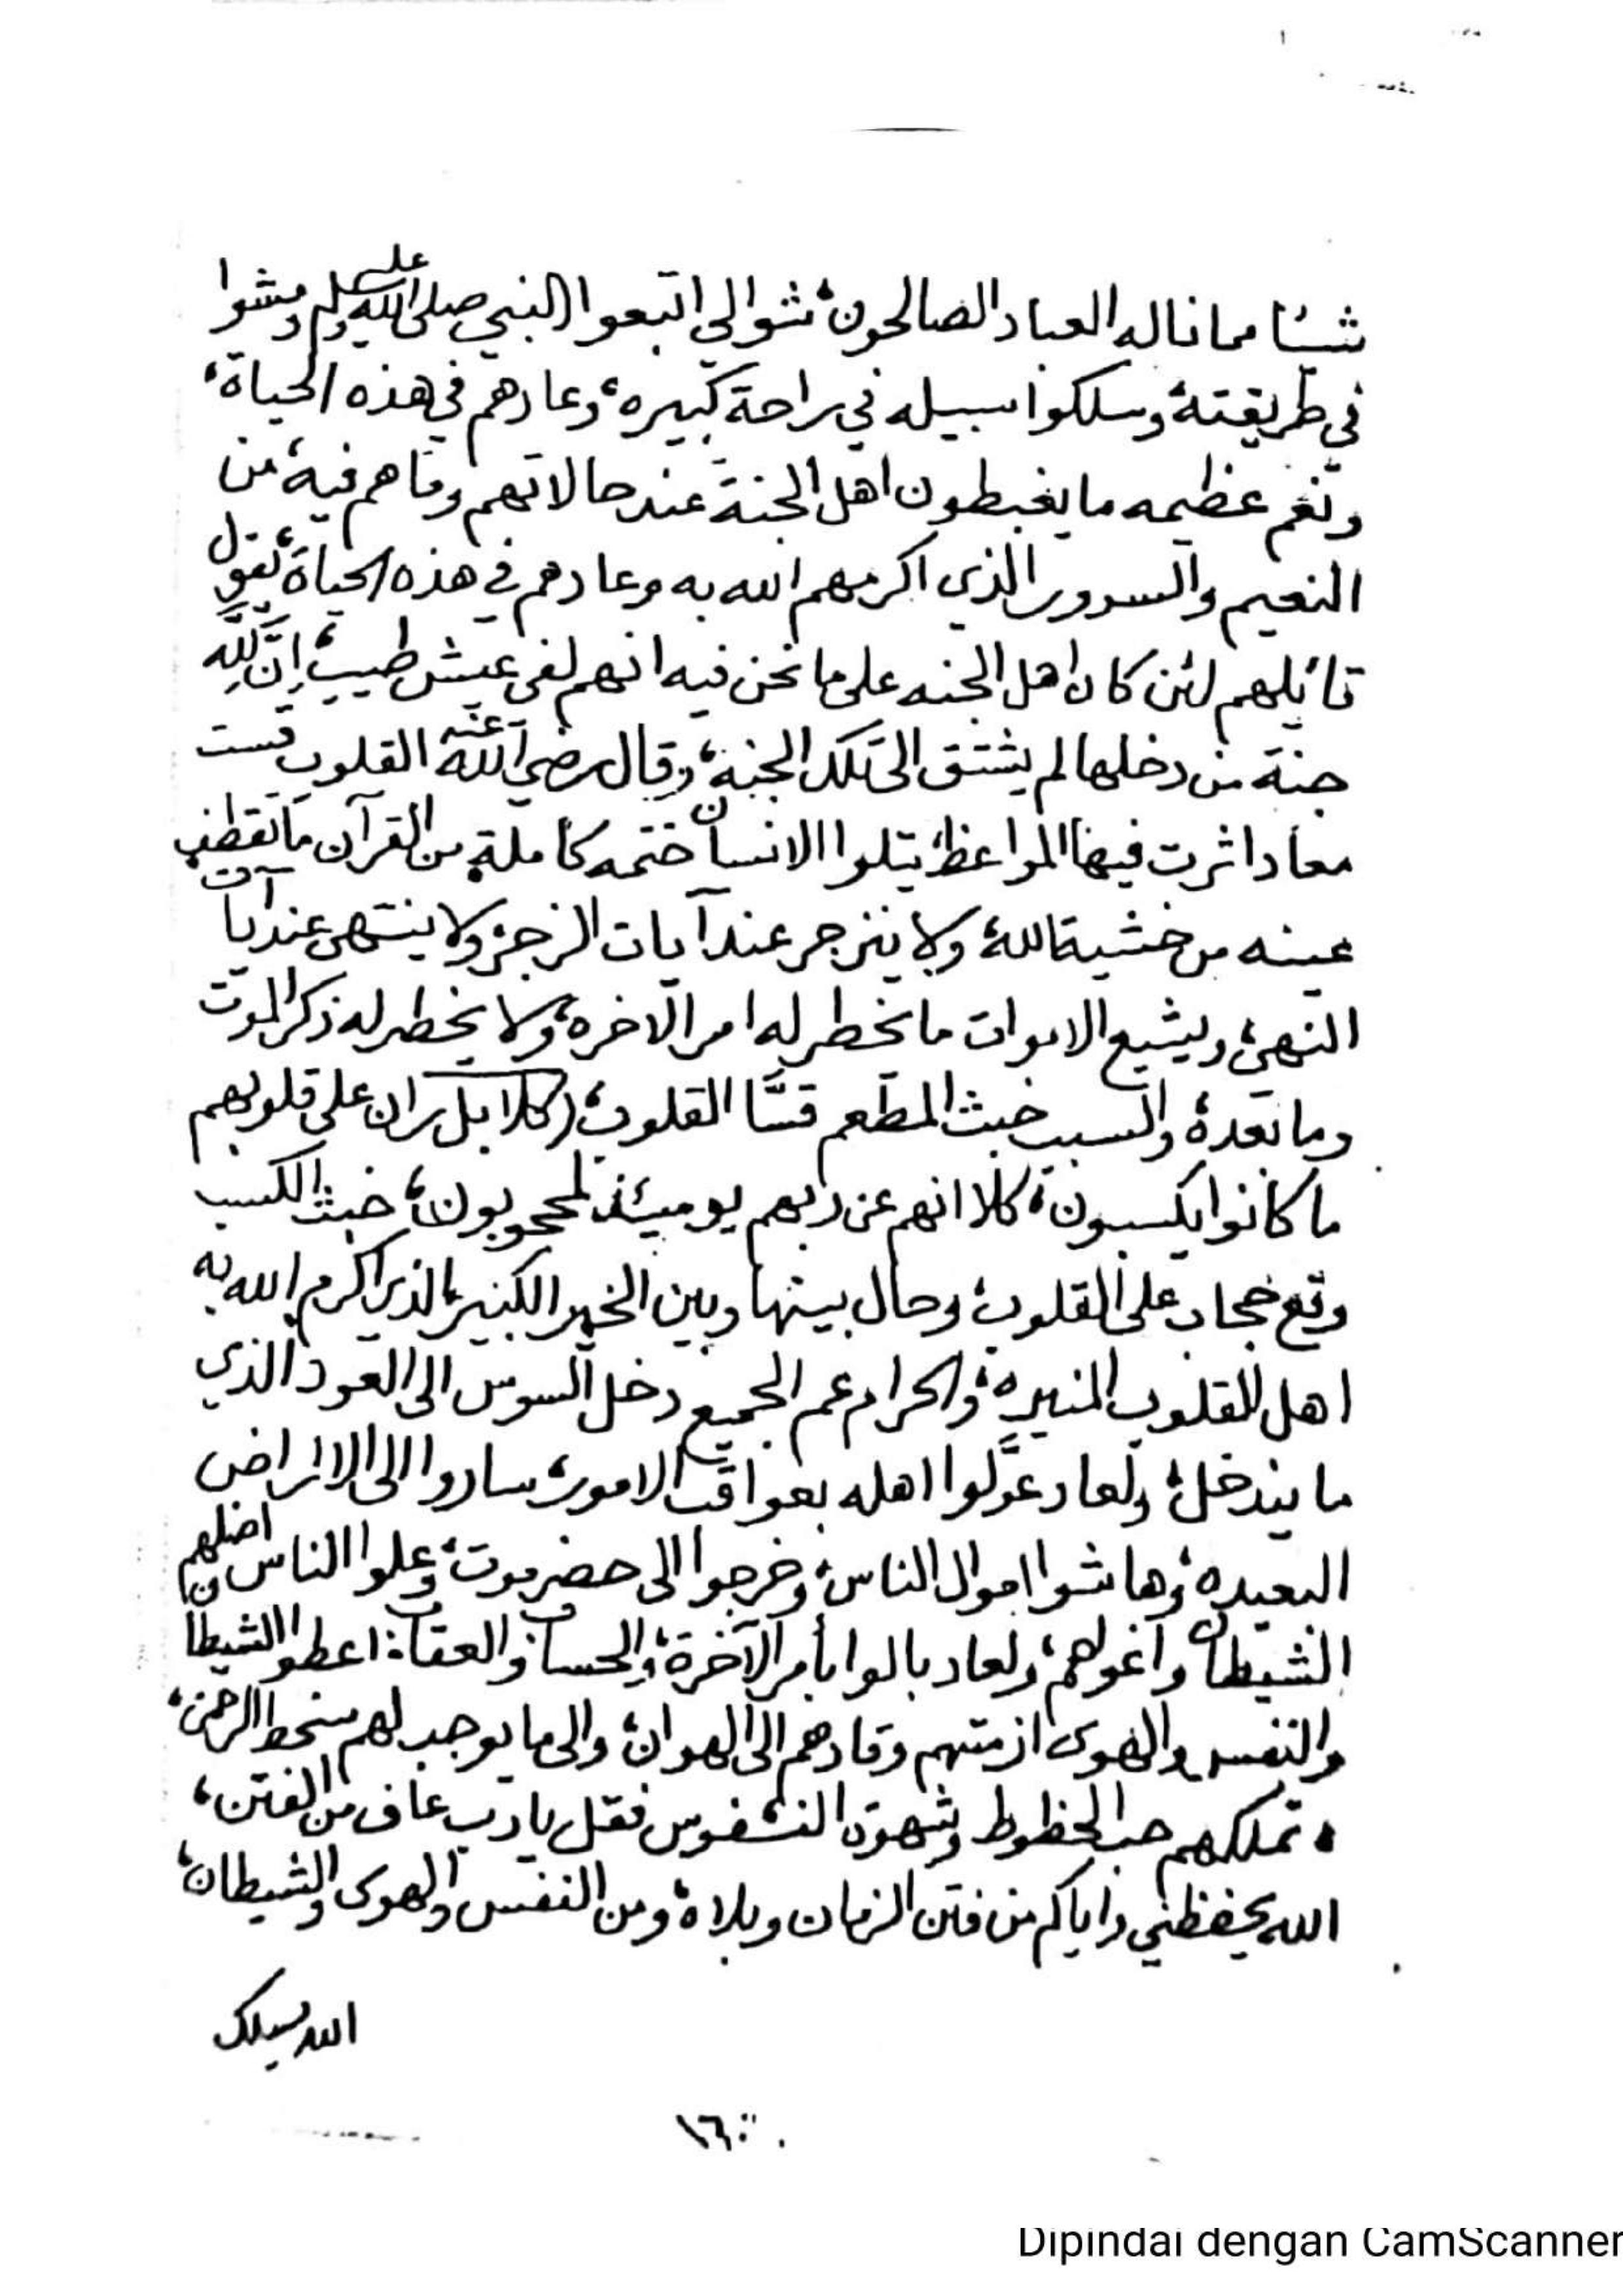 شيئا مما ناله العباد الصالحون، شوا لى اتبعوا النبي صلى الله عليه وسلم ومشوا
في طريقته، وسلكوا سبيله في راحة كبيره، وعادهم في هذه الحياة،
ونعم عظيمه ما يغبطون اهل الجنة عند حالاتهم وما هم فيه، من
النعيم والسرور الذي اكرمهم الله به وعادهم في هذه الحياة، يقول
قائلهم لئن كان اهل الجنه على ما نحن فيه انهم لفي عيش طيب، إنَّ لِلَّهِ
جنة من دخلها لم يشتق الى تلك الجنة، وقال رضي الله عنه القلوب قست
معاد اثرت فيها المواعظ، يتلوا الانسان ختمه كاملة من القرآن ما تقطف
عينه من خشية الله، ولا ينزجر عند آيات الزجر، ولا ينتهي عند آيات
النهي، ويشيع الاموات ما يخطر له امر الاخره، ولا يخطر له ذكر الموت
وما بعده، والسبب خبث المطعم قسَّا القلوب، (كلا بل ران على قلوبهم
ما كانوا يكسبون، كلا انهم عن ربهم يومئذ لمحجوبون)، خبث الكسب
وقع حجاب على القلوب، وحال بينها وبين الخير الكبير، الذي اكرم الله به
اهل القلوب المنيره، والحرام عم الجميع دخل السوس الى العود الذي
ما يندخل، ولعاد عوَّلوا اهله بعواقب الامور، ساروا الى الاراضي
البعيده، وهاشوا اموال الناس، وخرجوا الى حضرموت، وعلوا الناس اضلهم
الشيطان واغواهم، ولعاد بالوا بأمر الآخرة، والحساب والعقاب، اعطوا الشيطان
والنفس والهوى ازمتهم وقادهم الى الهوان، والى ما يوجب لهم سخط الرحمن،
تملكهم حب الحظوظ وشهوة النفوس فقل يا رب عاف من الفتن،
الله يحفظني واياكم من فتن الزمان وبلاه، ومن النفس والهوى والشيطان،
الله يسلك
١٦
Dipindai dengan CamScanner